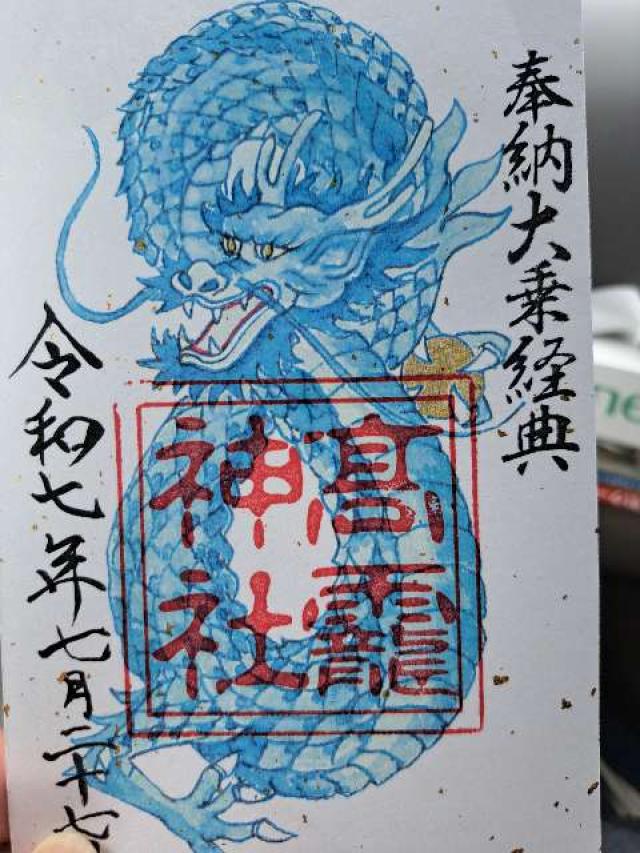 奉納大乗経典
高龗
神社
令和七年七月二十七日
ne